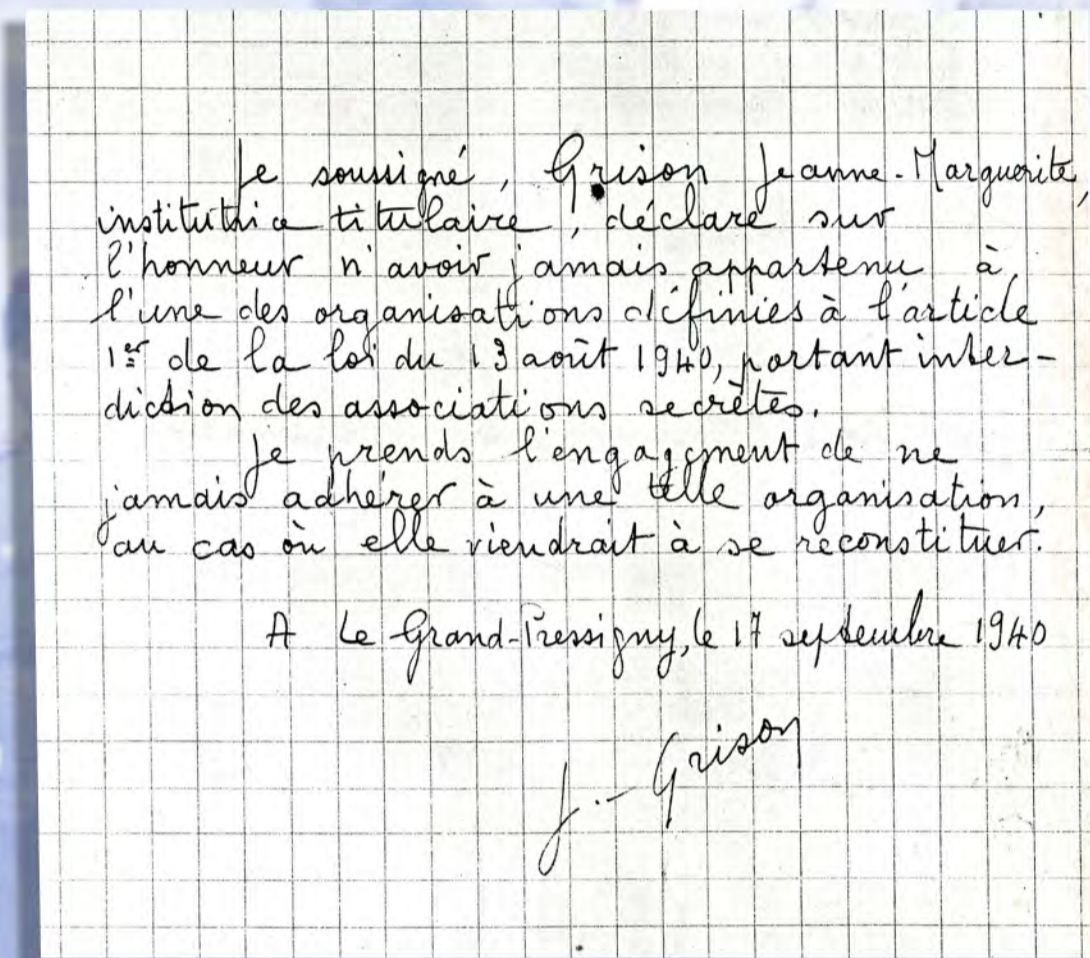 Je soussigné, Grison Jeanne-Marguerite,
institutrice titulaire, déclare sur
l'honneur n'avoir jamais appartenu à
l'une des organisations définies à l'article
1er de la loi du 13 août 1940, portant inter-
diction des associations secrètes.
Je prends l'engagement de ne
jamais adhérer à une telle organisation,
au cas où elle viendrait à se reconstituer.
A Le Grand-Pressigny, le 17 septembre 1940
J.- Grison